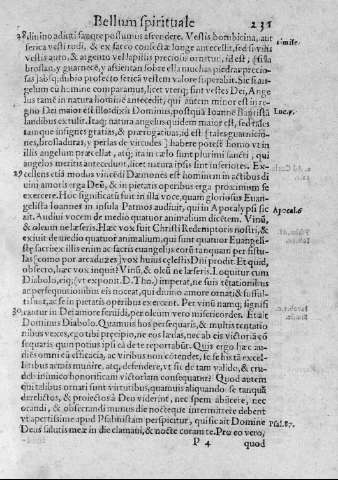 Bellum spirituale 231
28 diuino aditti sanque possumus
serica vesti rudi, & ex sacco confectæ longe antecellit, sed si vilis
vestis auto, & argento vel lapillis preciosis ornetur, id est,
broslan, y guarnece, y assientan sobre ella muchas piedras precio-
sas
gelum cũ homine comparamus, licet vterq; sint vestes Dei, Ange
lus tamẽ in natura homine antecedit; qui autem minor est in re-
gno Dei maior est illo dixit Dominus, postquã Ioanne Baptistã
laudibus extulit. Itaq; natura angelus quidem maior est, sed tales
tamque insignes gratias, & prærogatiuas, id est
nes, brosladuras, y perlas de virtudes ] habere potest homo vt in
illis angelum præcellat, atq; ita in cælo sunt plurimi sancti, qui
angelos meritis antecedunt, licet natura ipsis sint inferiores. Ex-
29 cellens etiã modus vincẽdi Dæmones est hominem in actibus di
uini amoris erga Deũ, & in pietatis operibus erga proximum se
exercere. Hoc significasti fuit in illa voce, quam gloriosus Euan-
gelista Ioannes in insula Patmos audiuit, qui in Apocalypsi sic
ait. Audiui vocem de medio quatuor animalium dicẽtem. Vinũ,
& oleum ne læseris. Hæc vox fuit Christi Redemptoris nostri, &
exiuit de medio quatuor animalium, qui sunt quatuor Euangeli-
stæ
las [como por arcaduzes] vox huius cælestis Dñi prodit. Et quid,
obsecro, hæc vox inquit? Vinũ, & oleũ ne læseris. Loquitur cum
Diabolo, eiq; (vt exponit D. Tho.) imperat, ne suis tẽtationibus
ac persequutionibus eis noceat, qui diuino amore ornati & suful-
ti sunt, ac se in pietatis operibus exercent. Per vinũ namq; signifi
30 cantur in Dei amore feruidi, per oleum vero misericordes. Et ait
Dominus Diabolo. Quamuis hos persequaris, & multis tentatio
nibus vexes, ego tibi præcipio, ne eos lædas, nec ab eis victoriã cõ
sequaris
diẽs omni cũ efficacia, ac viribus non cõtendet, se se his tã excel-
lẽtibus armis munire, atq; defendere, vt sic de tam valido, & cru-
honorificam victoriam consequatur? Quod autem
qui talibus ornati sunt virtutibus, quamuis aliquando se tanquã
derelictos, & proiectos à Deo viderint, nec spem abiicere, nec
orandi, & obsecrandi munus die nocteque intermittere debent
vt apertissime apud Psalmistam perspicitur, qui sic ait Domine
Deus salutis meæ in die clamaui, & nocte coram te. Pro eo vero,
P 4 quod
simile.
Luc. 7.
Apocal. 6
Psal. 87.